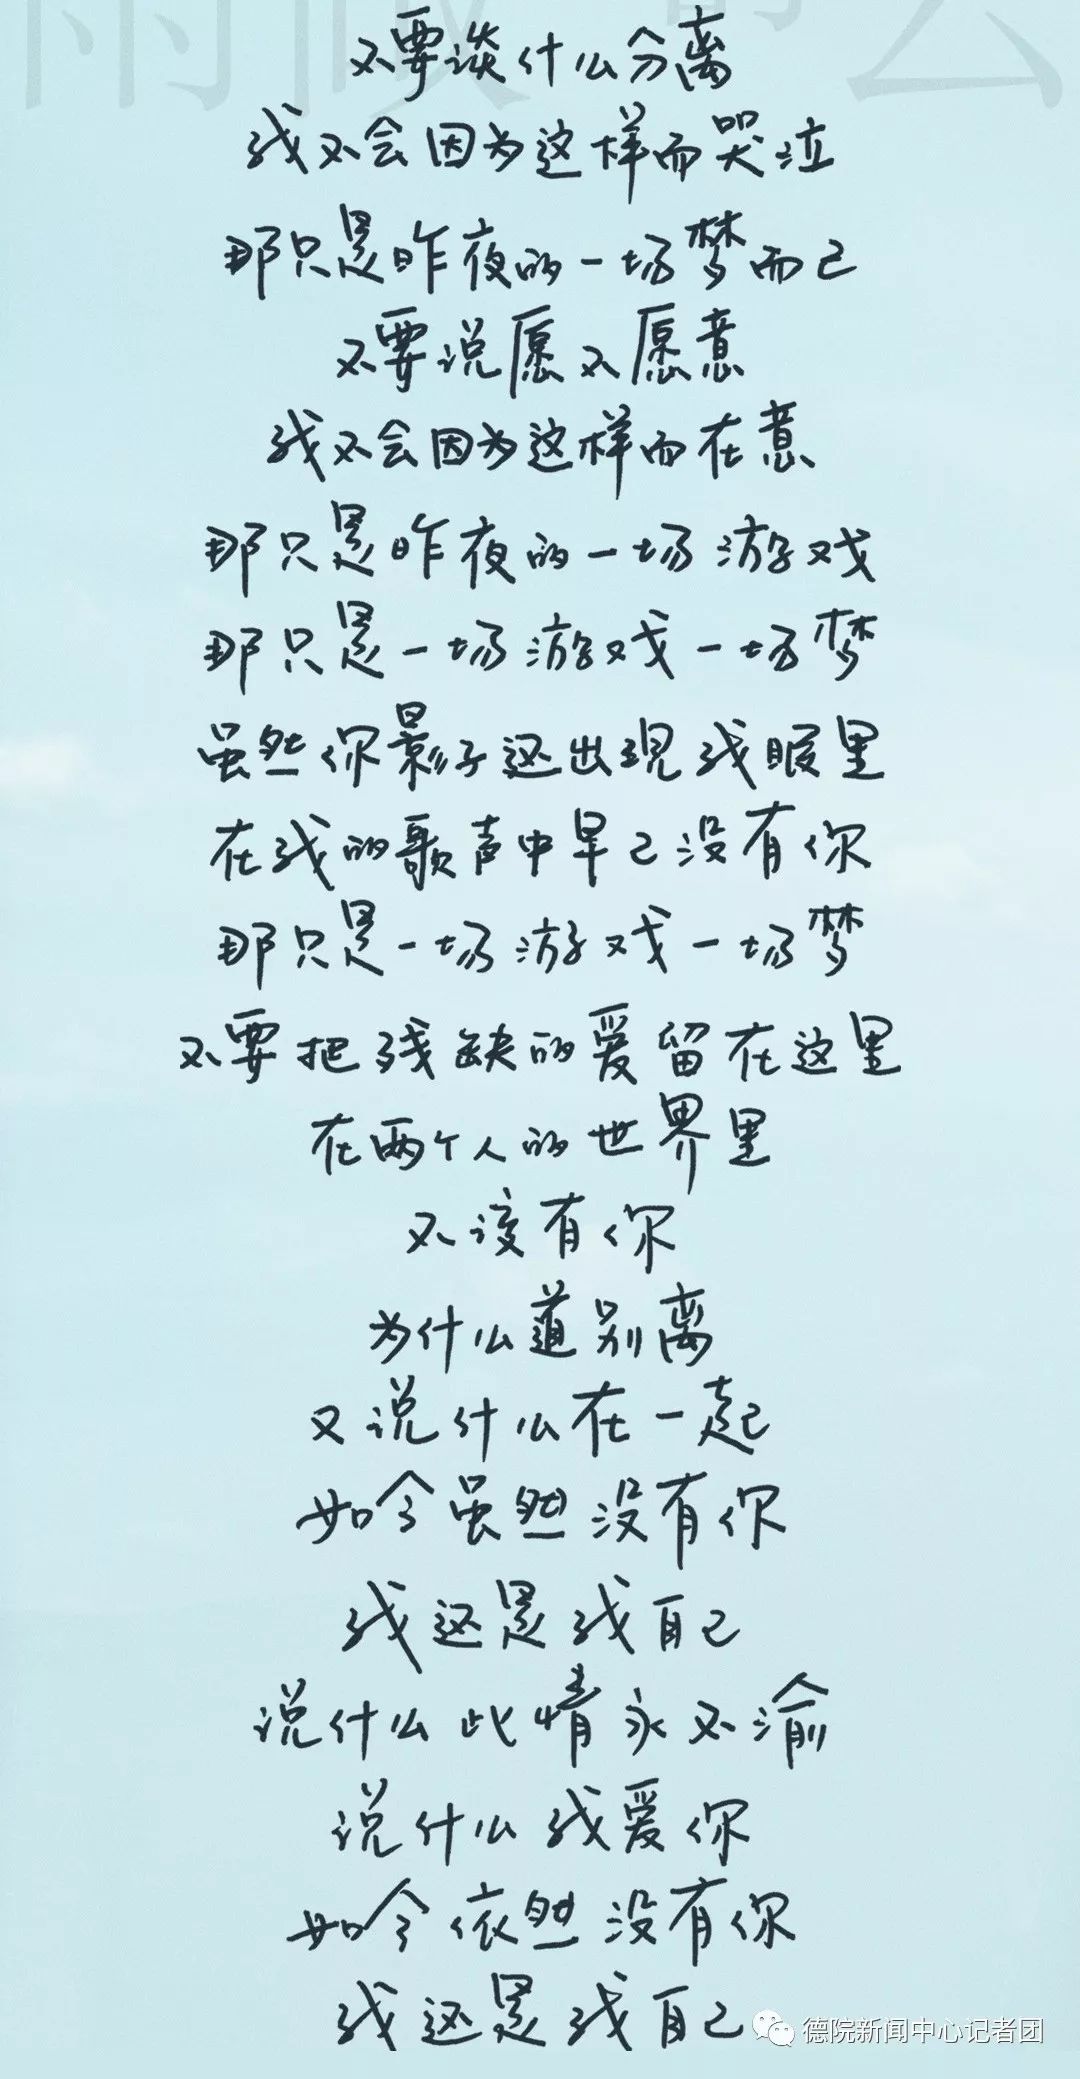 不要谈什么分离
我不会因为这样而哭泣
那只是昨夜的一场梦而已
不要说愿不愿意
我不会因为这样而在意
那只是昨夜的一场游戏
那只是一场游戏一场梦
虽然你影子还出现我眼里
在我的歌声中早已没有你
那只是一场游戏一场梦
不要把残缺的爱留在这里
在两个人的世界里
不该有你
为什么道别离
又说什么在一起
如今虽然没有你
我还是我自己
说什么此情永不渝
说什么我爱你
如今依然没有你
我还是我自己
德院新闻中心记者团